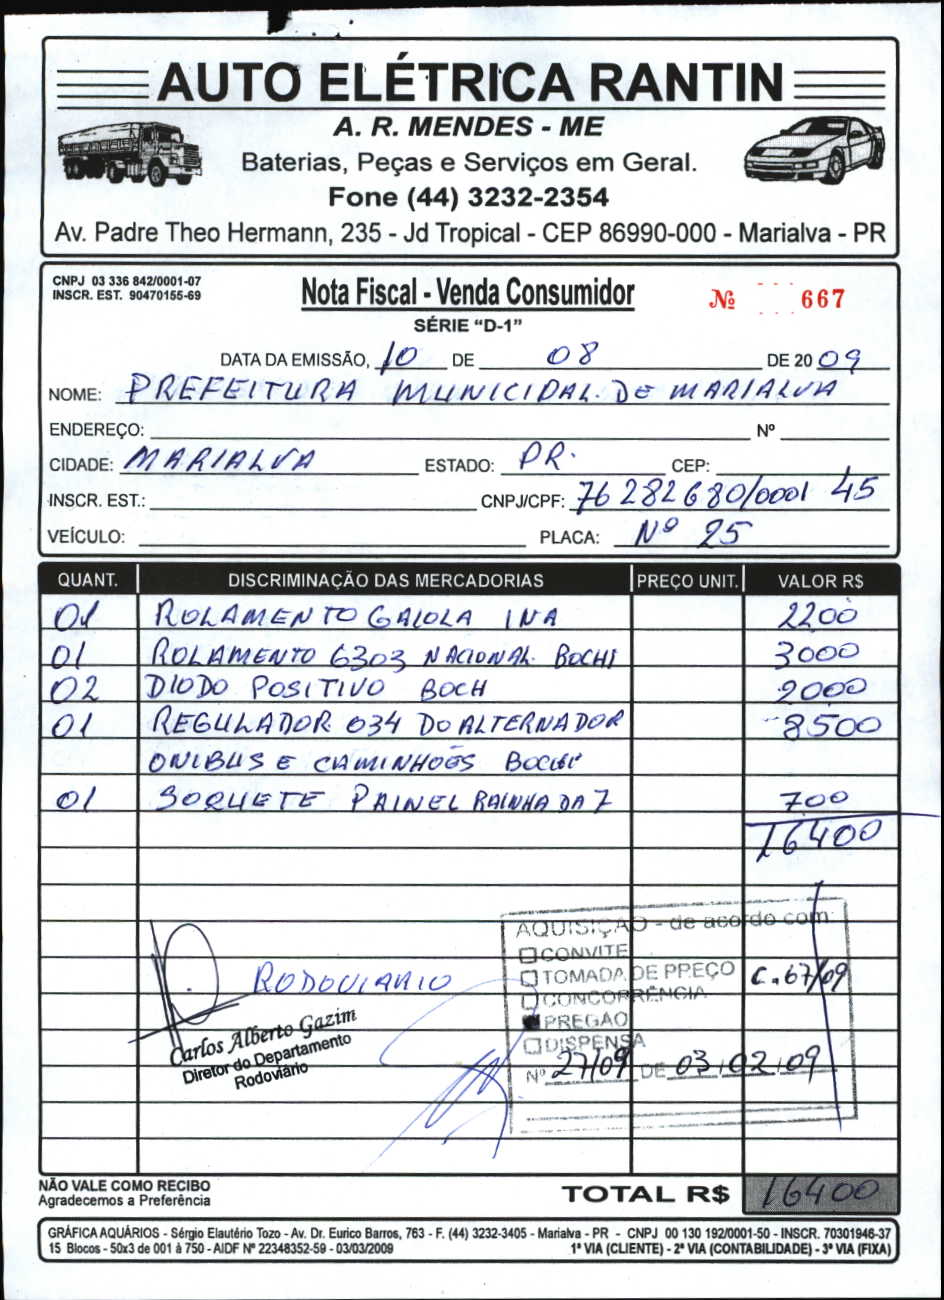 AUTO ELÉTRICA RANTIN
A. R. MENDES - ME
Baterias, Peças e Serviços em Geral.
Fone (44) 3232-2354
Av. Padre Theo Hermann, 235 - Jd Tropical - CEP 86990-000 - Marialva - PR
CNPJ 03 336 842/0001-07
INSCR. EST. 90470155-69
Nota Fiscal - Venda Consumidor
Nº 667
SÉRIE "D-1"
DATA DA EMISSÃO, 10 DE 08 DE 2009
NOME: PREFEITURA MUNICIPAL DE MARIALVA
ENDEREÇO: Nº
CIDADE: MARIALVA ESTADO: PR. CEP:
INSCR. EST.: CNPJ/CPF: 76 282 680/0001 45
VEÍCULO: PLACA: Nº 25
QUANT. DISCRIMINAÇÃO DAS MERCADORIAS PREÇO UNIT. VALOR R$
01 ROLAMENTO GAIOLA INA 2200
01 ROLAMENTO 6303 NACIONAL BOCHI 3000
02 DIODO POSITIVO BOCH 2000
01 REGULADOR 034 DO ALTERNADOR 8500
ONIBUS E CAMINHÕES
01 SOQUETE PAINEL RAINHA DA 7 700
16400
AQUISIÇAO - de acordo com:
CONVITE
TOMADA DE PREÇO C. 67/09
CONCORRÊNCIA
PREGAO
DISPENSA
Nº 27/09 DE 03/02/09
RODOVIARIO
Carlos Alberto Gazim
Diretor do Departamento
Rodoviário
NÃO VALE COMO RECIBO
Agradecemos a Preferência
TOTAL R$ 16400
GRÁFICA AQUÁRIOS - Sérgio Elautério Tozo - Av. Dr. Eurico Barros, 763 - F. (44) 3232-3405 - Marialva - PR - CNPJ 00 130 192/0001-50 - INSCR. 70301946-37
15 Blocos - 50x3 de 001 à 750 - AIDF Nº 22348352-59 - 03/03/2009 1ª VIA (CLIENTE) - 2ª VIA (CONTABILIDADE) - 3ª VIA (FIXA)